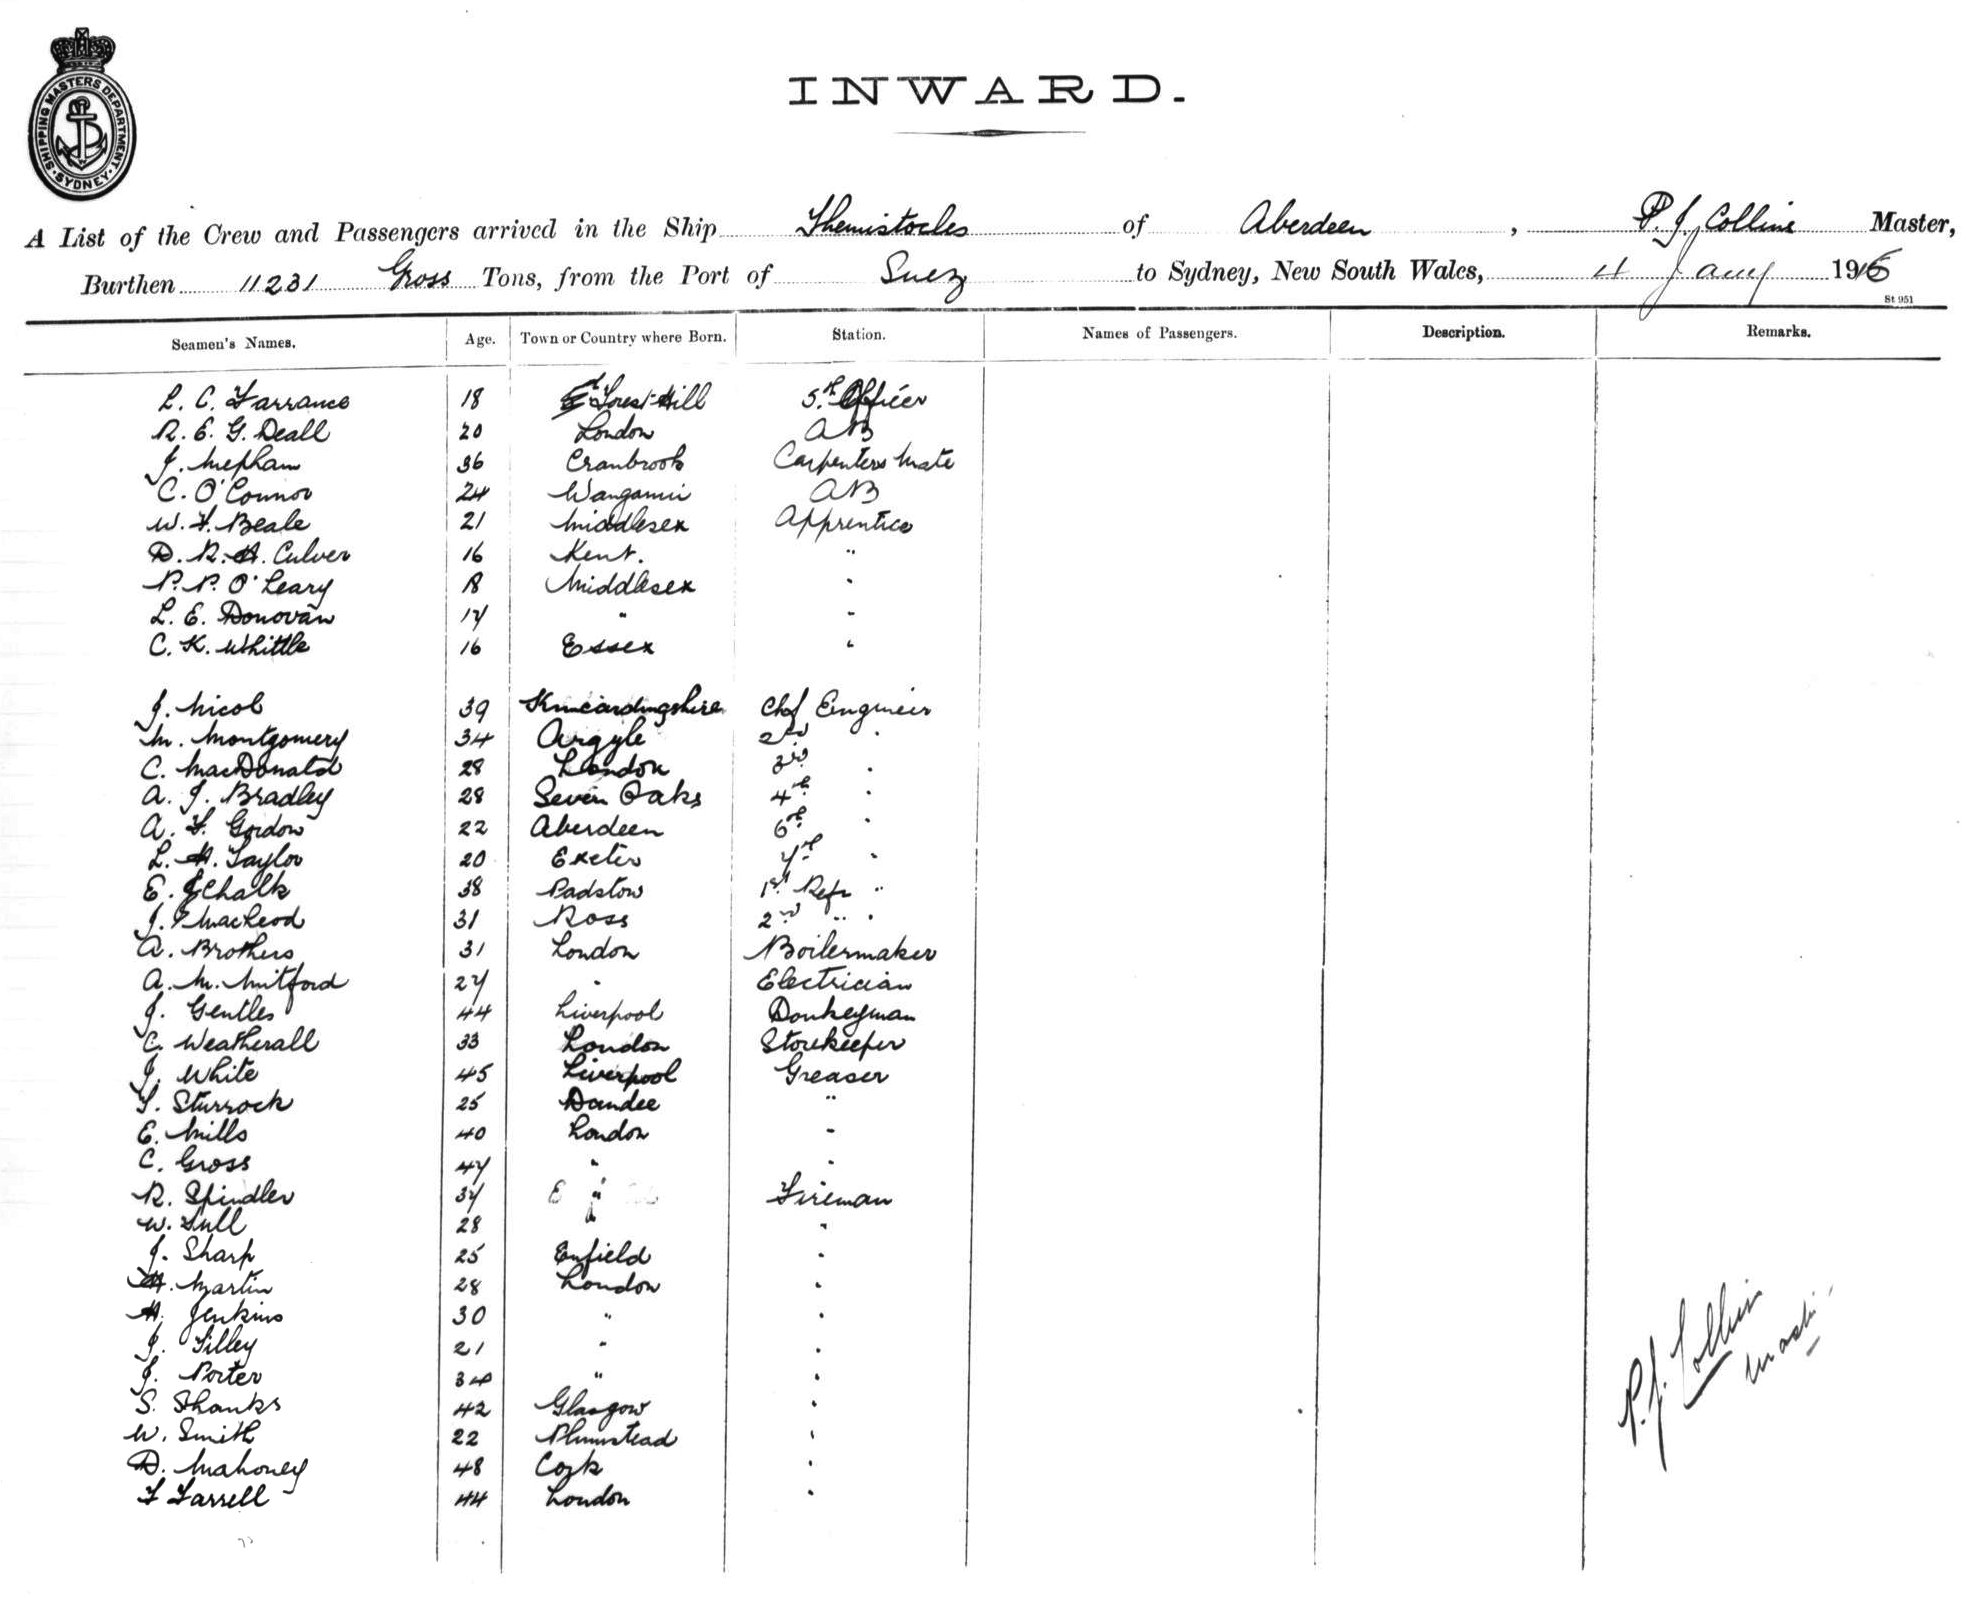 SHIPPING MASTERS DEPARTMENT
SYDNEY
INWARD.
A List of the Crew and Passengers arrived in the Ship Themistocles of Aberdeen, P. J. Collins Master,
Burthen 11231 Gross Tons, from the Port of Suez to Sydney, New South Wales, 4 Jany 1916
St 951
Seamen's Names. Age. Town or Country where Born. Station. Names of Passengers. Description. Remarks.
L. C. Farrance 18 Forest Hill 5.th Officer
R. E. G. Deall 20 London AB
J. Mepham 36 Cranbrook Carpenters Mate
C. O'Connor 24 Wanganui AB
W. F. Beale 21 Middlesex Apprentice
D. R. H. Culver 16 Kent. "
P. P. O'Leary 18 Middlesex "
L. E. Donovan 17 " "
C. K. Whittle 16 Essex "
J. Nicol 39 Kincardingshire Chf Engineer
M. Montgomery 34 Argyle 2nd "
C. MacDonald 28 London 3rd "
A. J. Bradley 28 Seven Oaks 4th "
A. F. Gordon 22 Aberdeen 6th "
L. H. Taylor 20 Exeter 7th "
E. J Chalk 38 Padstow 1st Refr "
J. MacLeod 31 Ross 2nd " "
A. Brothers 31 London Boilermaker
A. M. Mitford 27 " Electrician
J. Gentles 44 Liverpool Donkeyman
C. Weatherall 33 London Storekeeper
J. White 45 Liverpool Greaser
F. Sturrock 25 Dundee "
E. Mills 40 London "
C. Gross 47 " "
R. Spindler 37 " Fireman
W. 28 " "
J. Sharp 25 Enfield "
H. Martin 28 London "
H. Jenkins 30 " "
J. Tilley 21 " "
J. Porter 34 " "
S. Shanks 42 Glasgow "
W. Smith 22 Plumstead "
D. Mahoney 48 Cork "
F Farrell 44 London "
P. J. Collins
Master